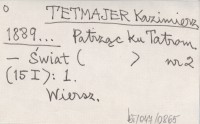 O TETMAJER Kazimierz
1889... Patrząc ku Tatrom
— Świat ( ) nr 2
(15 I): 1.
Wiersz.